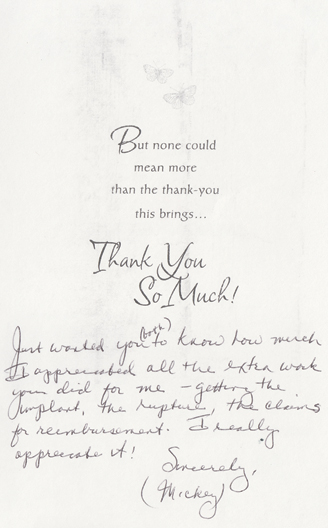 But none could
mean more
than the thank-you
this brings...
Thank You
So Much!
(both)
Just wanted you to know how much
I appreciated all the extra work
you did for me - getting the
implant, the rupture, the claims
for reimbursement. I really
appreciate it!
Sincerely,
(Mickey)